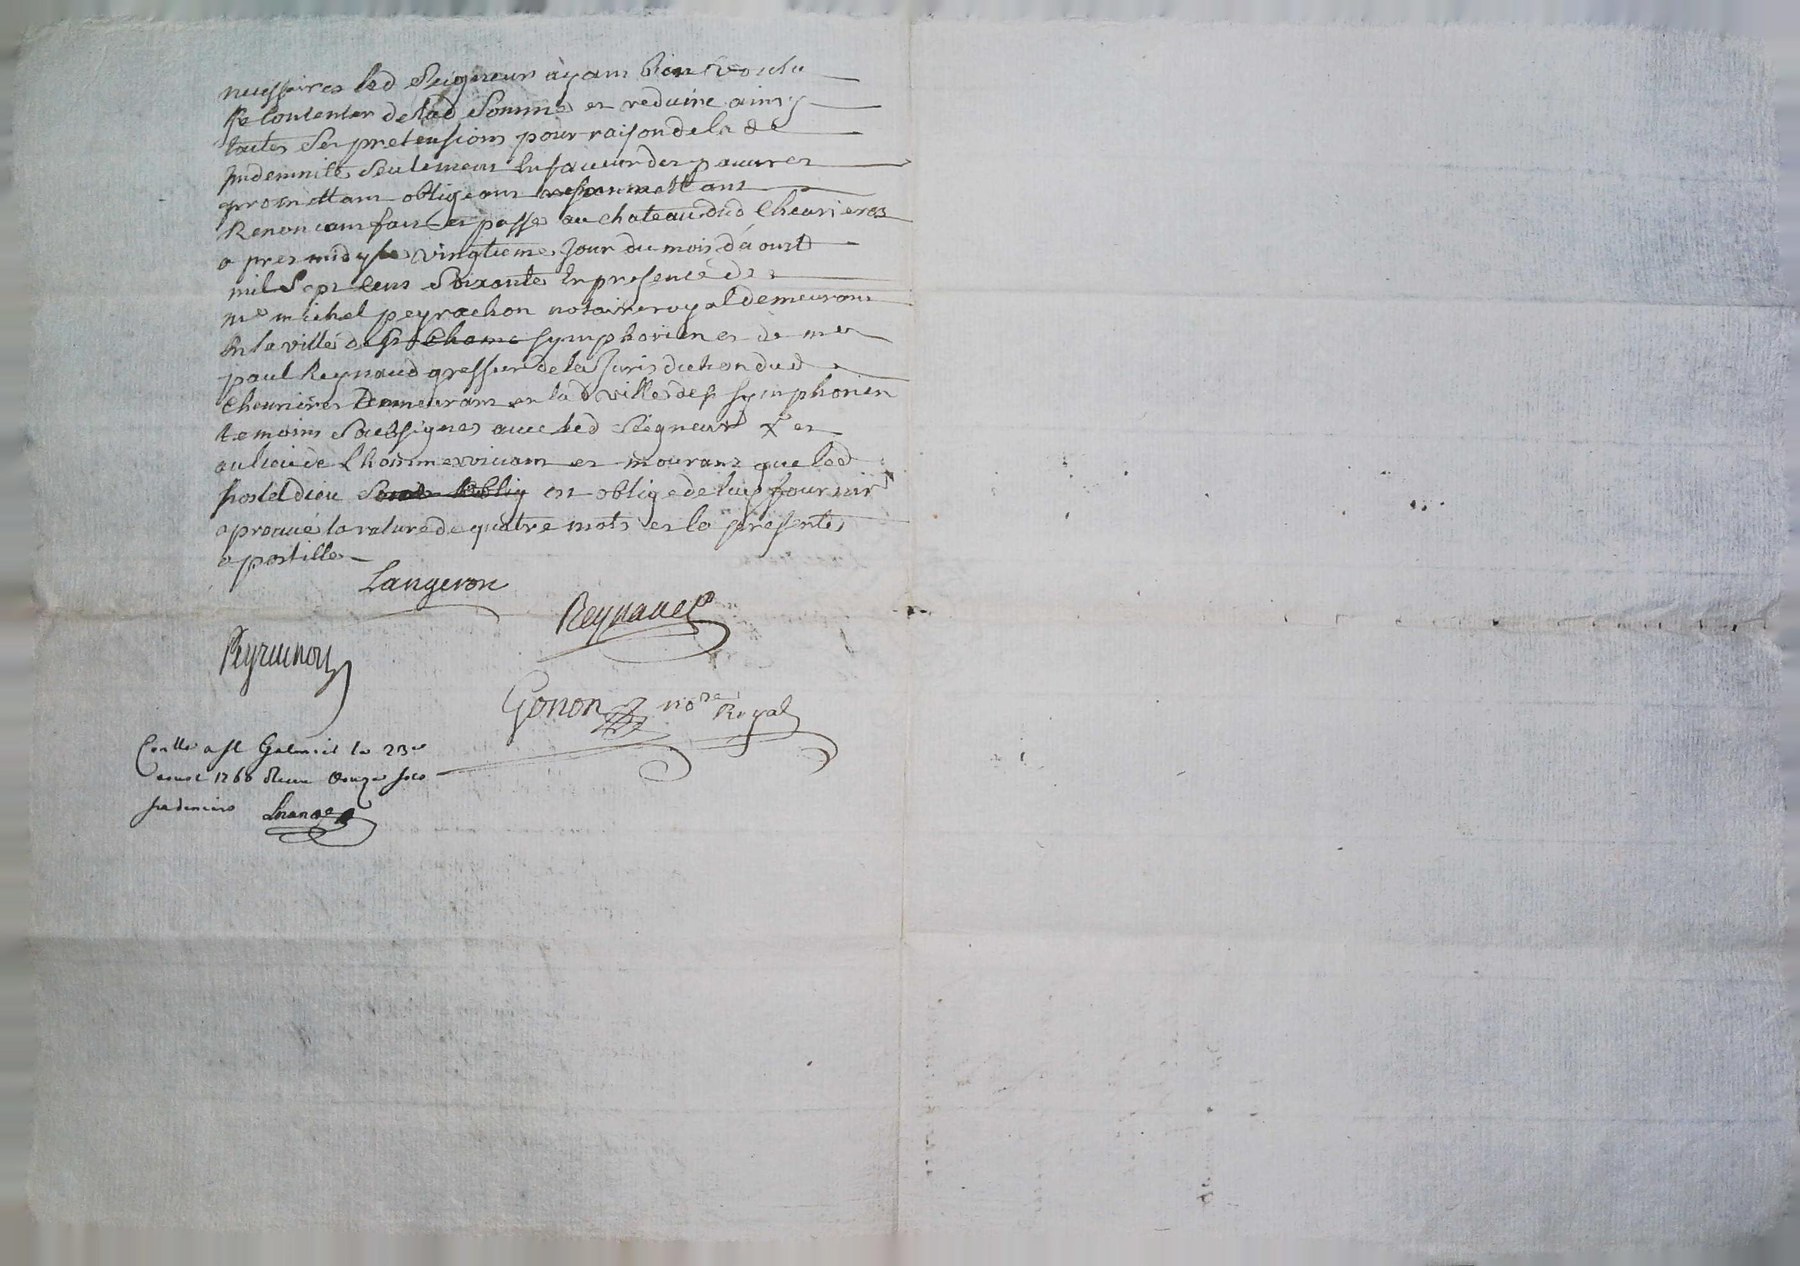 necessaires led Seigneur ayant bien voulu
se Contenter de lad Somme et reduire ainsy
toutes Ses pretensions pour raison de la de
Indemnité Seulement En faveur des pauvres
promettant obligeant
Renoncant fait et passé au chateau dud Chevrieres
apres midy le vingtieme Jour du mois d'aoust
mil Sept Cens Soixante En presence de
me michel peyrachon notaire royal demeurant
En la ville de St Chame symphorien et de me
paul Reynaud greffier de la Jurisdiction dud
Chevrieres Demeurant en lad ville de St symphorien
temoins Soubsignes avec led Seigneur X et
au lieu de L'homme vivant et mourant que led
hostel dieu est obligé de luy fournir
aprouvé la rature de quatre mots et la presente
apostille
Langeron
Reynaud
Peyrachon
Gonon nore Royal
Conllé a St Galmier le 23e
aoust 1760 Reçu douze sols
six deniers